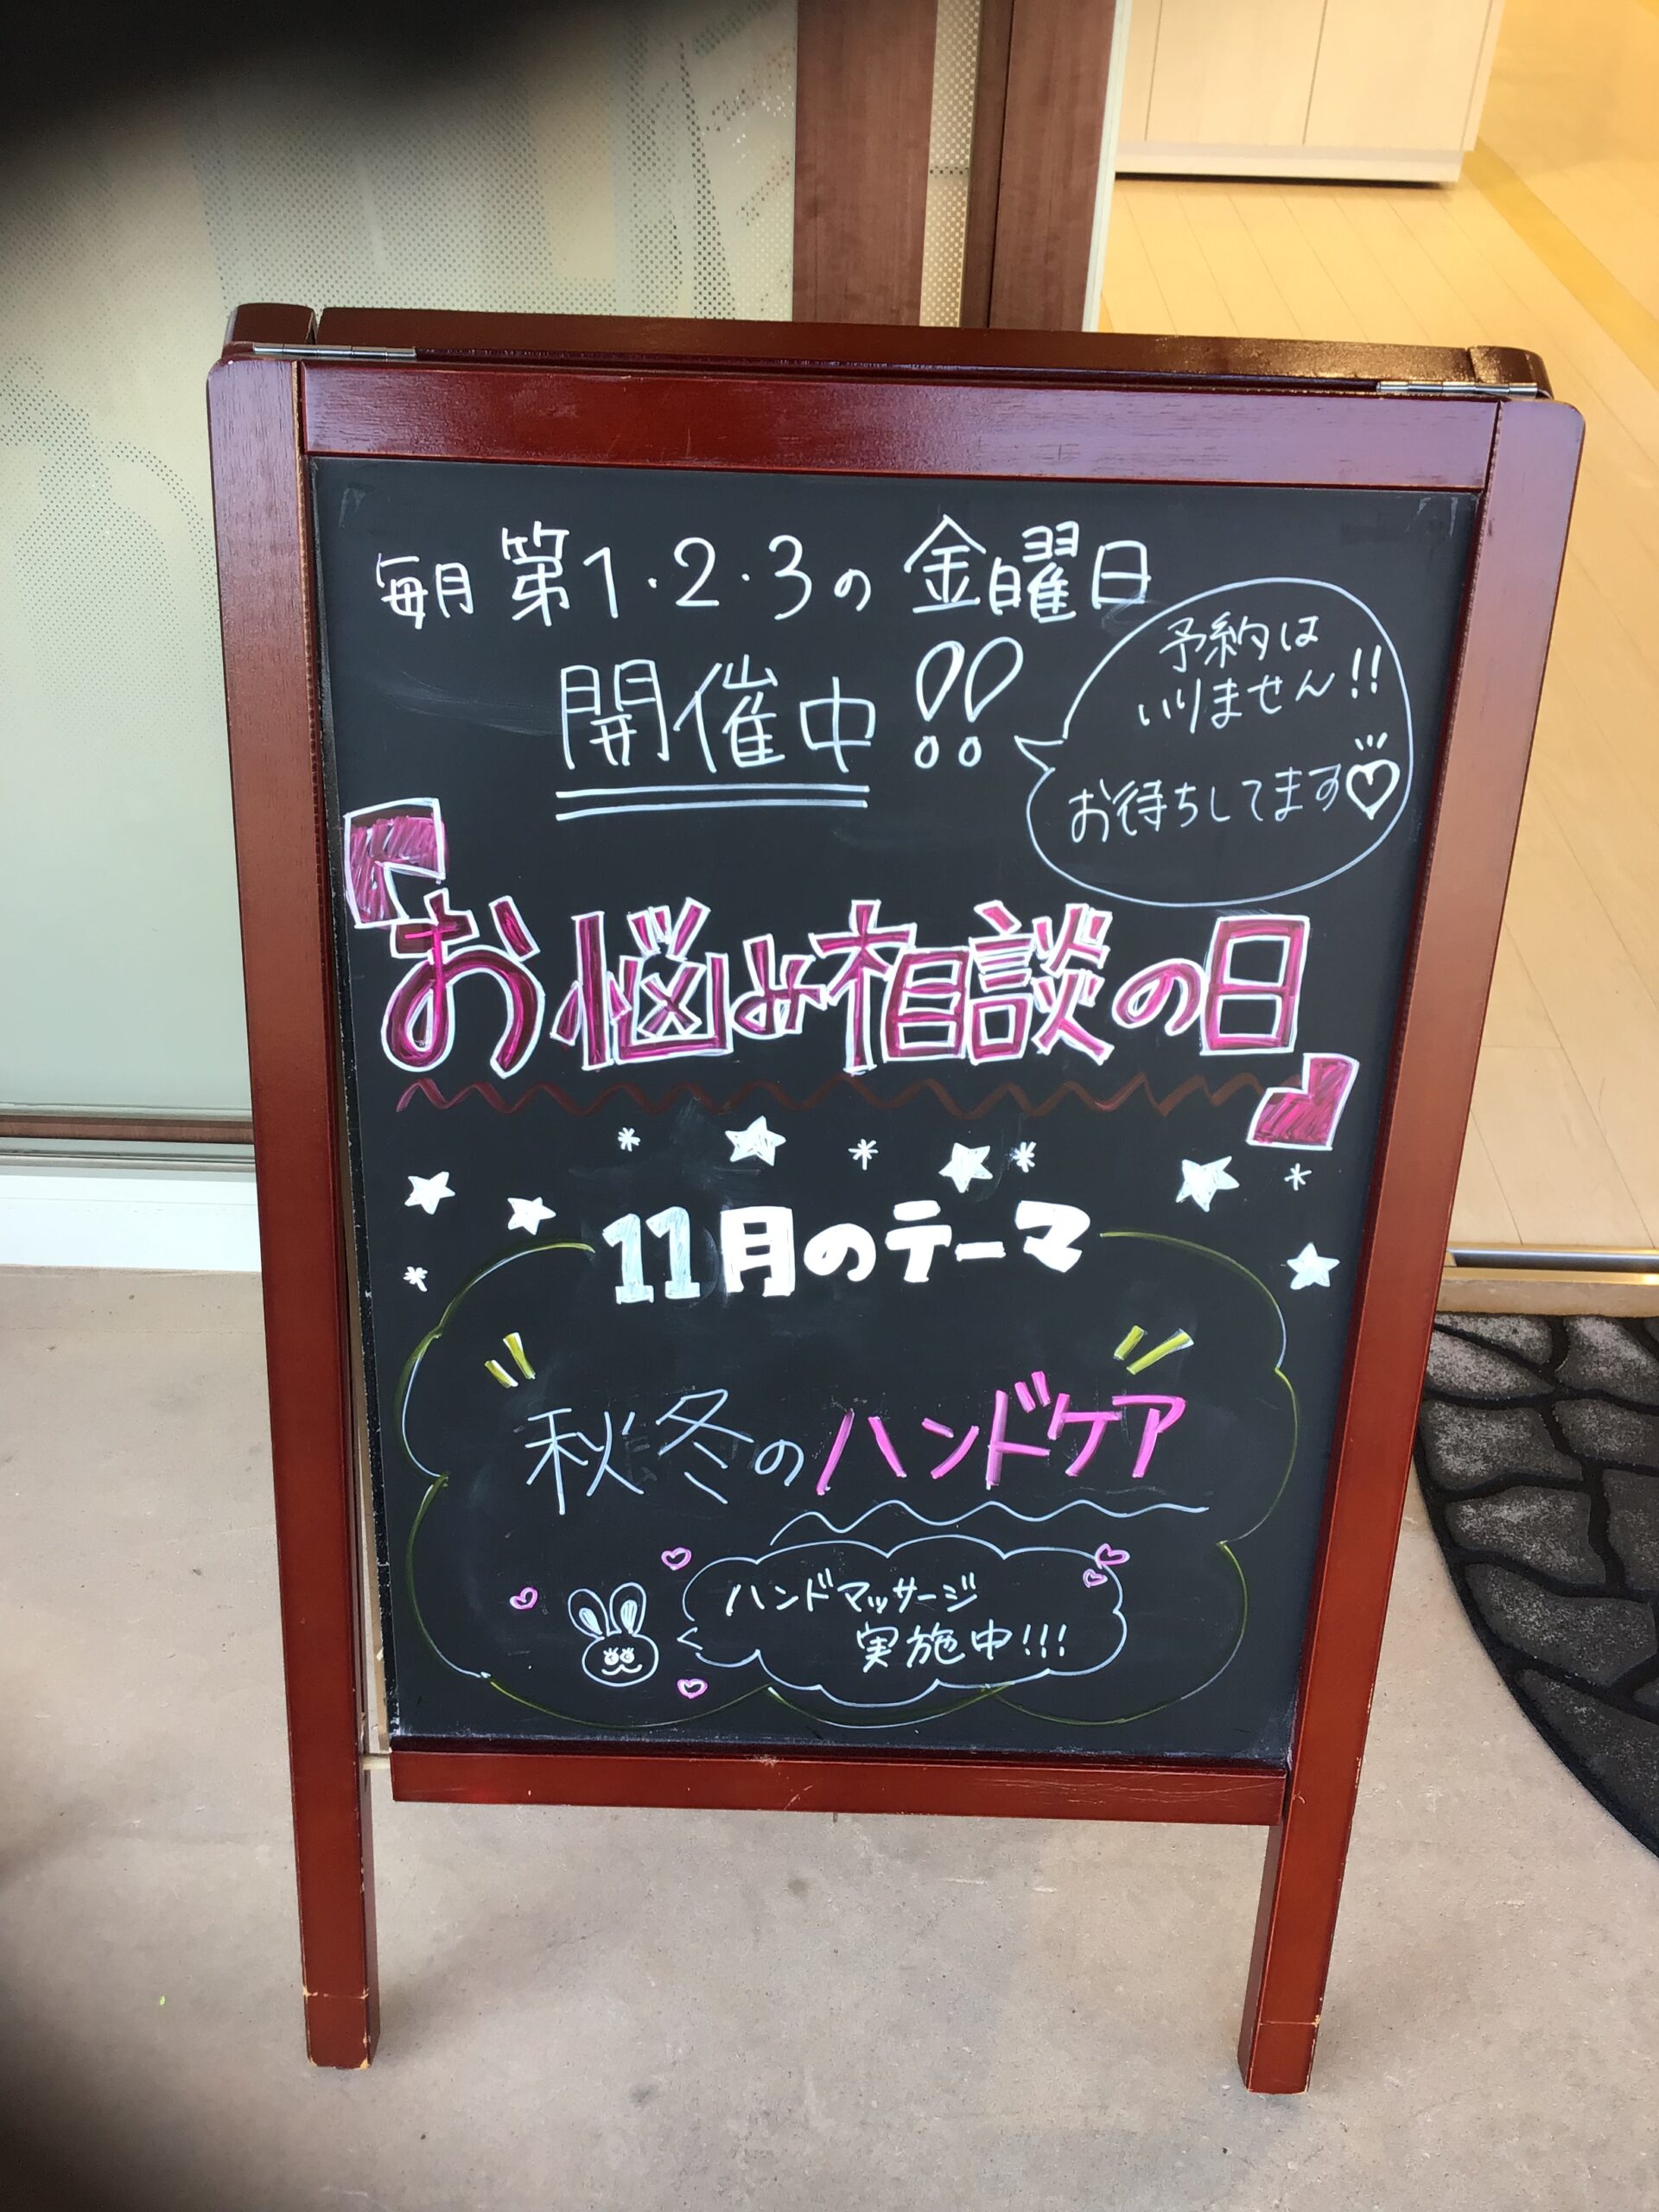 毎月 第1・2・3の 金曜日
開催中!!
予約は
いりません!!
お待ちしてます♡
『お悩み相談の日』
11月のテーマ
秋冬のハンドケア
ハンドマッサージ
実施中!!!